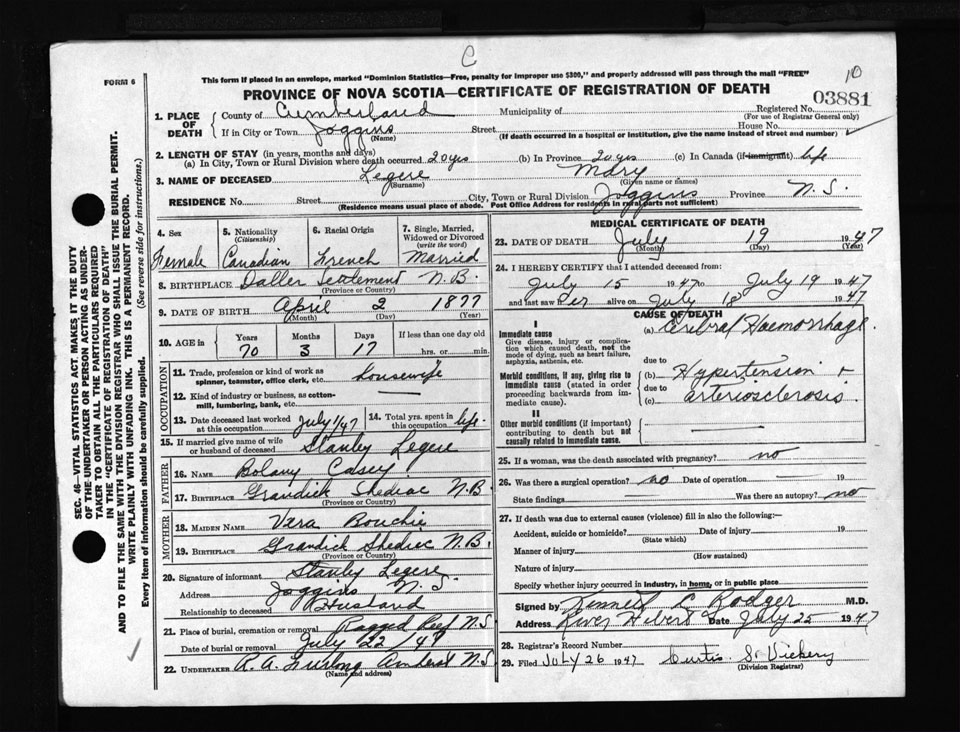 C
10
FORM 6
This form if placed in an envelope, marked "Dominion Statistics—Free, penalty for improper use $300," and properly addressed will pass through the mail "FREE"
PROVINCE OF NOVA SCOTIA—CERTIFICATE OF REGISTRATION OF DEATH
03881
1. PLACE OF DEATH
County of Cumberland Municipality of Registered No.
(For use of Registrar General only)
If in City or Town Joggins Street House No.
(Name) (If death occurred in a hospital or institution, give the name instead of street and number)
2. LENGTH OF STAY (in years, months and days)
(a) In City, Town or Rural Division where death occurred 20 yrs (b) In Province 20 yrs (c) In Canada (if immigrant) life
3. NAME OF DECEASED Legere Mary
(Surname) (Given name or names)
RESIDENCE No. Street City, Town or Rural Division Joggins Province N.S.
(Residence means usual place of abode. Post Office Address for residents in rural parts not sufficient)
4. Sex Female
5. Nationality (Citizenship) Canadian
6. Racial Origin French
7. Single, Married, Widowed or Divorced (write the word) Married
8. BIRTHPLACE Settlement N.B.
(Province or Country)
9. DATE OF BIRTH April 2 1877
(Month) (Day) (Year)
10. AGE in Years Months Days If less than one day old
70 3 17 hrs. or min.
OCCUPATION
11. Trade, profession or kind of work as spinner, teamster, office clerk, etc. housewife
12. Kind of industry or business, as cotton-mill, lumbering, bank, etc. —
13. Date deceased last worked at this occupation July 1/47
14. Total yrs. spent in this occupation life
15. If married give name of wife or husband of deceased Stanley Legere
FATHER
16. Name Casey
17. Birthplace Grandick Shediac N.B.
(Province or Country)
MOTHER
18. Maiden Name Vera Bouchie
19. Birthplace Grandick Shediac N.B.
(Province or Country)
20. Signature of informant Stanley Legere
Address Joggins N.S.
Relationship to deceased Husband
21. Place of burial, cremation or removal Ragged Reef N.S
Date of burial or removal July 22 '47
22. UNDERTAKER R. A. Furlong Amherst N.S
(Name and address)
MEDICAL CERTIFICATE OF DEATH
23. DATE OF DEATH July 19 1947
(Month) (Day) (Year)
24. I HEREBY CERTIFY that I attended deceased from:
July 15 1947 to July 19 1947
and last saw her alive on July 18 1947
CAUSE OF DEATH
I
Immediate cause
Give disease, injury or complication which caused death, not the mode of dying, such as heart failure, asphyxia, asthenia, etc.
(a) Cerebral Haemorrhage.
due to
Morbid conditions, if any, giving rise to immediate cause (stated in order proceeding backwards from immediate cause).
(b) Hypertension +
due to
(c) arteriosclerosis.
II
Other morbid conditions (if important) contributing to death but not causally related to immediate cause.
25. If a woman, was the death associated with pregnancy? no
26. Was there a surgical operation? no Date of operation — 19
State findings — Was there an autopsy? no
27. If death was due to external causes (violence) fill in also the following:—
Accident, suicide or homicide? Date of injury 19
(State which)
Manner of injury
(How sustained)
Nature of injury
Specify whether injury occurred in industry, in home, or in public place
Signed by Kenneth L Rodger M.D.
Address River Hebert Date July 25 1947
28. Registrar's Record Number
29. Filed JULY 26 1947 Curtis S. Vickery
(Division Registrar)
SEC. 46—VITAL STATISTICS ACT MAKES IT THE DUTY
OF THE UNDERTAKER OR PERSON ACTING AS UNDER-
TAKER TO OBTAIN ALL THE PARTICULARS REQUIRED
IN THE "CERTIFICATE OF REGISTRATION OF DEATH"
AND TO FILE THE SAME WITH THE DIVISION REGISTRAR WHO SHALL ISSUE THE BURIAL PERMIT.
WRITE PLAINLY WITH UNFADING INK. THIS IS A PERMANENT RECORD.
Every item of information should be carefully supplied. (See reverse side for instructions.)